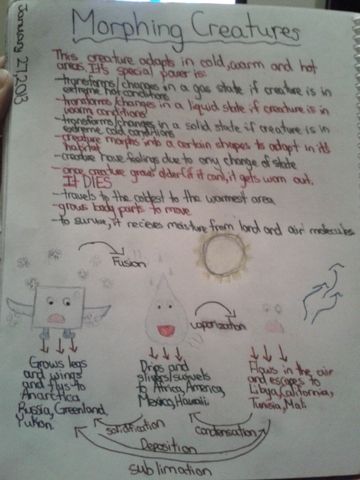 January 27, 2013
Morphing Creatures
This creature adapts in cold, warm and hot
areas. It's special power is:
-transforms/changes in a gas state if creature is in
extreme hot conditions
-transforms/changes in a liquid state if creature is in
warm conditions
-transforms/changes in a solid state if creature is in
extreme cold conditions
-creature morphs into a certain shapes to adapt in its
habitat
-creature have feelings due to any change of state
-once creature grows older (if it can), it gets worn out.
IT DIES
-travels to the coldest to the warmest area
-grows body parts to move
-to survive, it recieves moisture from land and air molecules
Fusion
vaporization
Grows legs
and wings
and flys to
Anarctica
Russia, Greenland,
Yukon.
Drips and
to Africa, America,
Mexico, Hawaii
Flows in the air
and escapes to
Libya, California,
Tunisia, Mali
solidification
condensation
Deposition
sublimation